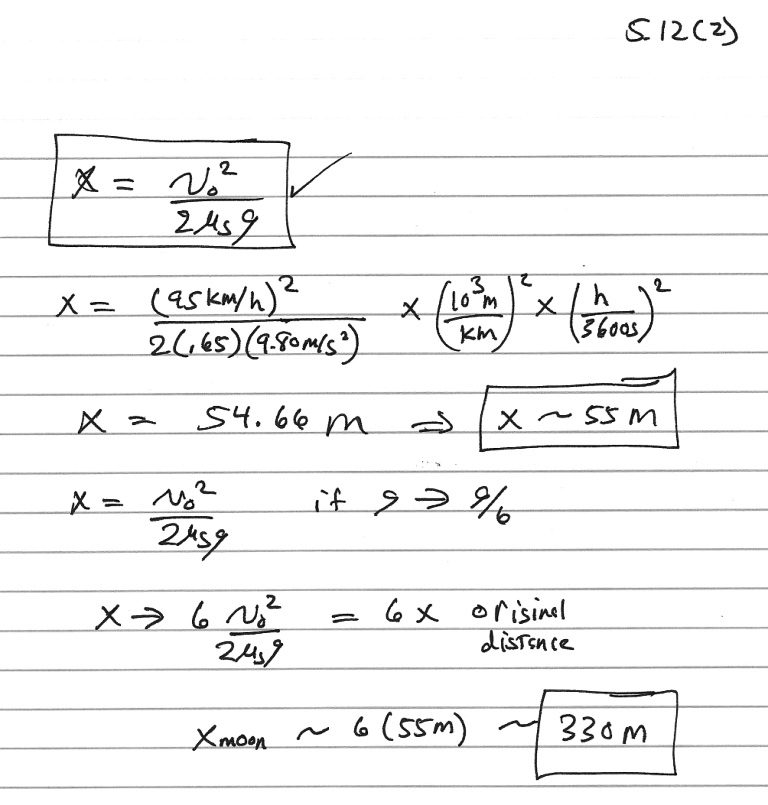 5.12(2)
x = v₀² / 2μₛg ✓
x = (95 km/h)² / 2(.65)(9.80 m/s²) × (10³m / km)² × (h / 3600s)²
x = 54.66 m ⇒ x ~ 55 m
x = v₀² / 2μₛg if g → g/6
x → 6 v₀² / 2μₛg = 6 x original
distance
xmoon ~ 6 (55m) ~ 330 m